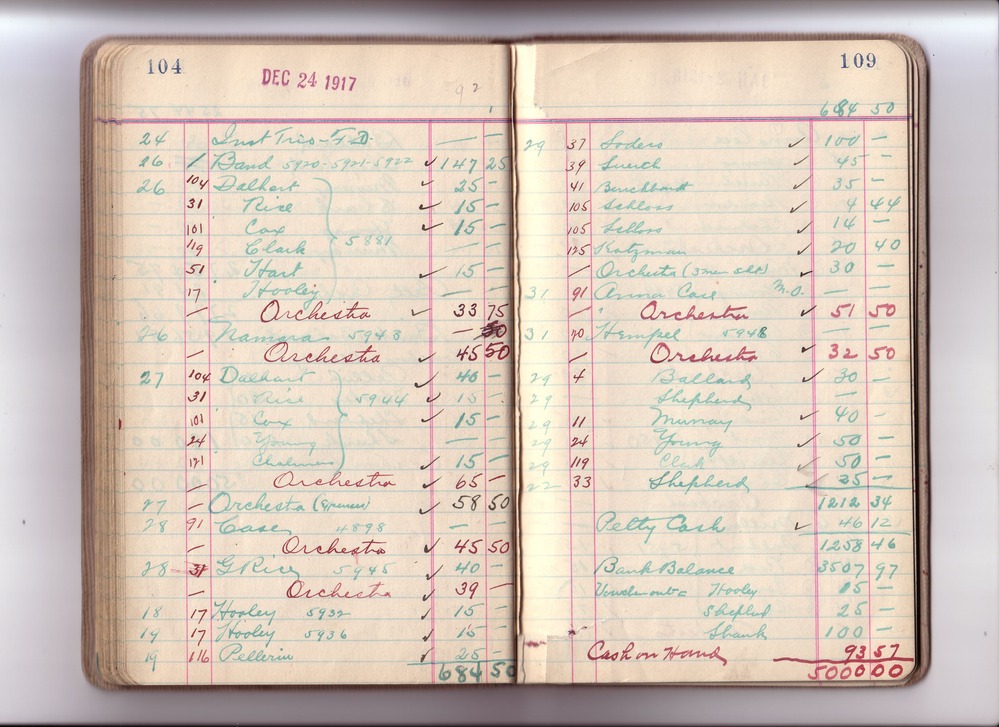 104
DEC 24 1917
92
24 Inst Trio - F.D. — —
26 / Band 5920-5921-5922 ✓ 147 25
26 104 Dalhart ✓ 25 -
31 Rice ✓ 15 -
101 Cox ✓ 15 -
119 Clark 5881 — —
51 Hart ✓ 15 -
17 Hooley — —
— Orchestra ✓ 33 75
26 Namara 5943 —
— Orchestra ✓ 45 50
27 104 Dalhart ✓ 40 -
31 Rice 5944 ✓ 15 -
101 Cox ✓ 15 -
24 Young — —
121 Chalmers ✓ 15 -
Orchestra ✓ 65 -
27 — Orchestra ✓ 58 50
28 91 Case 4898 — —
— Orchestra ✓ 45 50
28 31 G Rice 5945 ✓ 40 -
— Orchestra ✓ 39 -
18 17 Hooley 5932 ✓ 15 -
19 17 Hooley 5936 ✓ 15 -
19 116 Pellerin ✓ 25 -
684 50
109
684 50
29 37 Soders ✓ 100 -
39 ✓ 45 -
41 Burckhardt ✓ 35 -
105 Schloss ✓ 4 44
105 Schloss ✓ 14 -
125 Katzman ✓ 20 40
— Orchestra (3 men ) ✓ 30 -
31 91 Anna Case M.O. — —
— Orchestra ✓ 51 50
31 70 Hempel 5948 — —
— Orchestra ✓ 32 50
29 4 Ballard ✓ 30 -
29 Shepherd —
29 11 Murray ✓ 40 -
29 24 Young ✓ 50 -
29 119 Clark ✓ 50 -
22 33 Shepherd ✓ 25 -
1212 34
Petty Cash ✓ 46 12
1258 46
Bank Balance 3507 97
Vouchers out - Hooley 15 -
Shepherd 25 -
Shank 100 -
Cash on Hand 93 57
5000 00